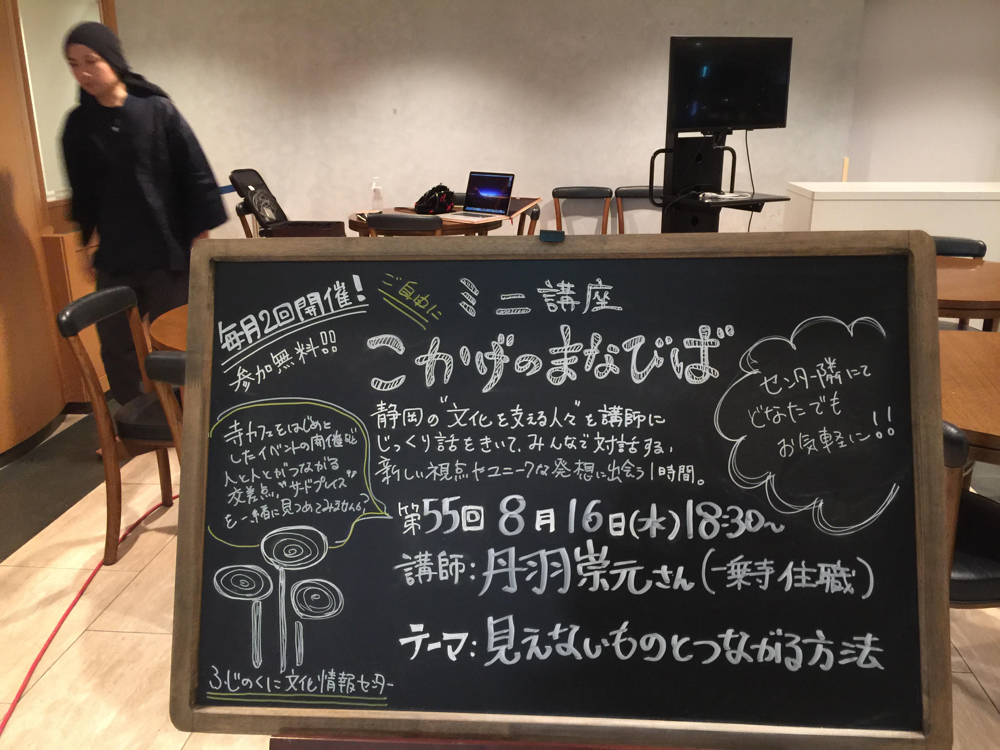 毎月2回開催!
参加無料!!
ご自由に
ミニ講座
こかげのまなびば"
静岡の"文化を支える人々"を講師に
じっくり話をきいて、みんなで対話する、
新しい視点やユニークな発想に出会う1時間。
センター隣にて
どなたでも
お気軽に!!
寺カフェをはじめと
したイベントの開催など
人と人とがつながる
交差点、"サードプレイス"
を一緒に見つめてみませんか?
第55回 8月16日(水)18:30〜
講師:丹羽崇元さん(一乗寺住職)
テーマ:見えないものとつながる方法
ふじのくに文化情報センター